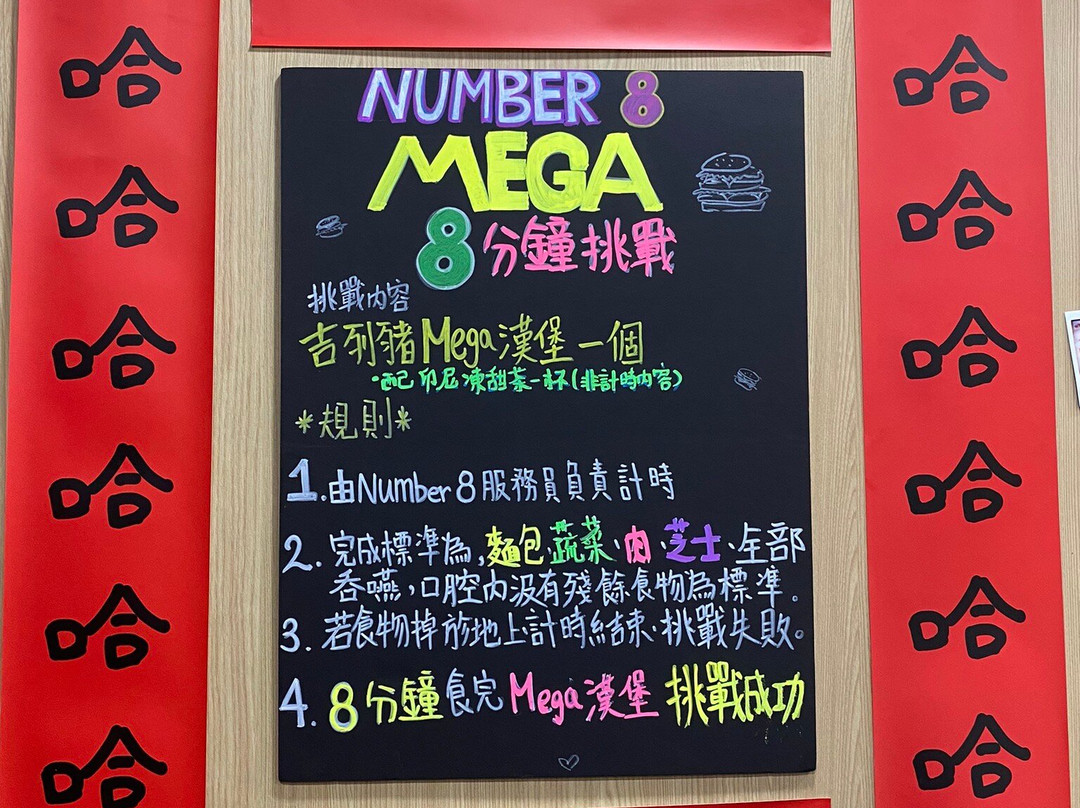 哈
哈
哈
哈
哈
哈
NUMBER 8
MEGA
8分鐘挑戰
挑戰內容
吉列豬Mega漢堡一個
·配印尼凍甜茶一杯(非計時內容)
*規則*
1.由Number 8服務員負責計時
2.完成標準為,麵包、蔬菜、肉、芝士、全部
吞嚥,口腔內沒有殘餘食物為標準。
3.若食物掉於地上計時結束、挑戰失敗。
4.8分鐘食完Mega漢堡 挑戰成功
哈
哈
哈
哈
哈
哈